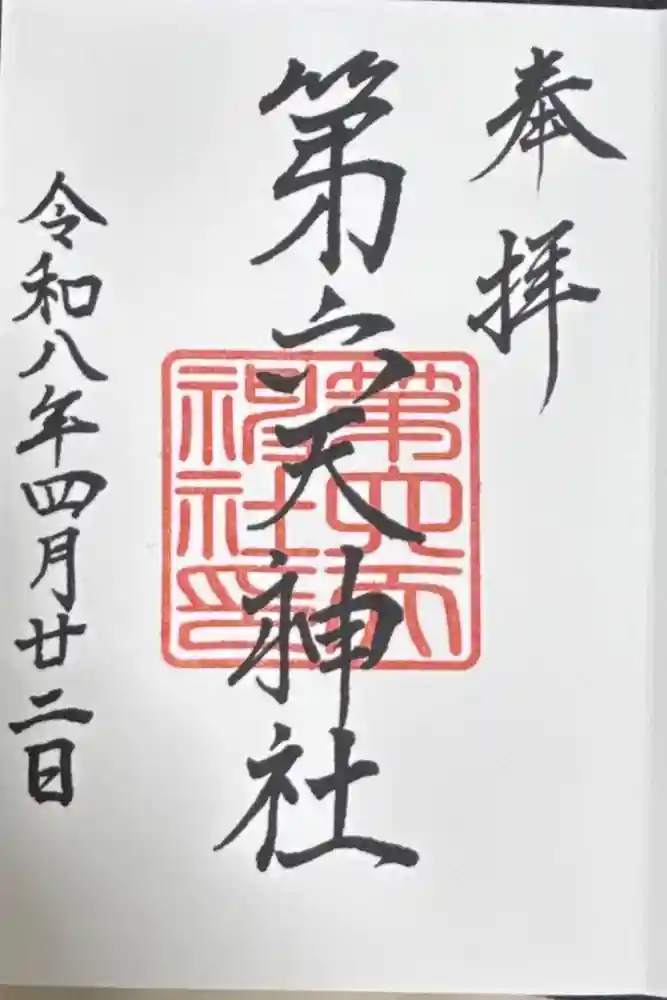 奉拝
第六天神社
第六天
神社印
令和八年四月廿二日